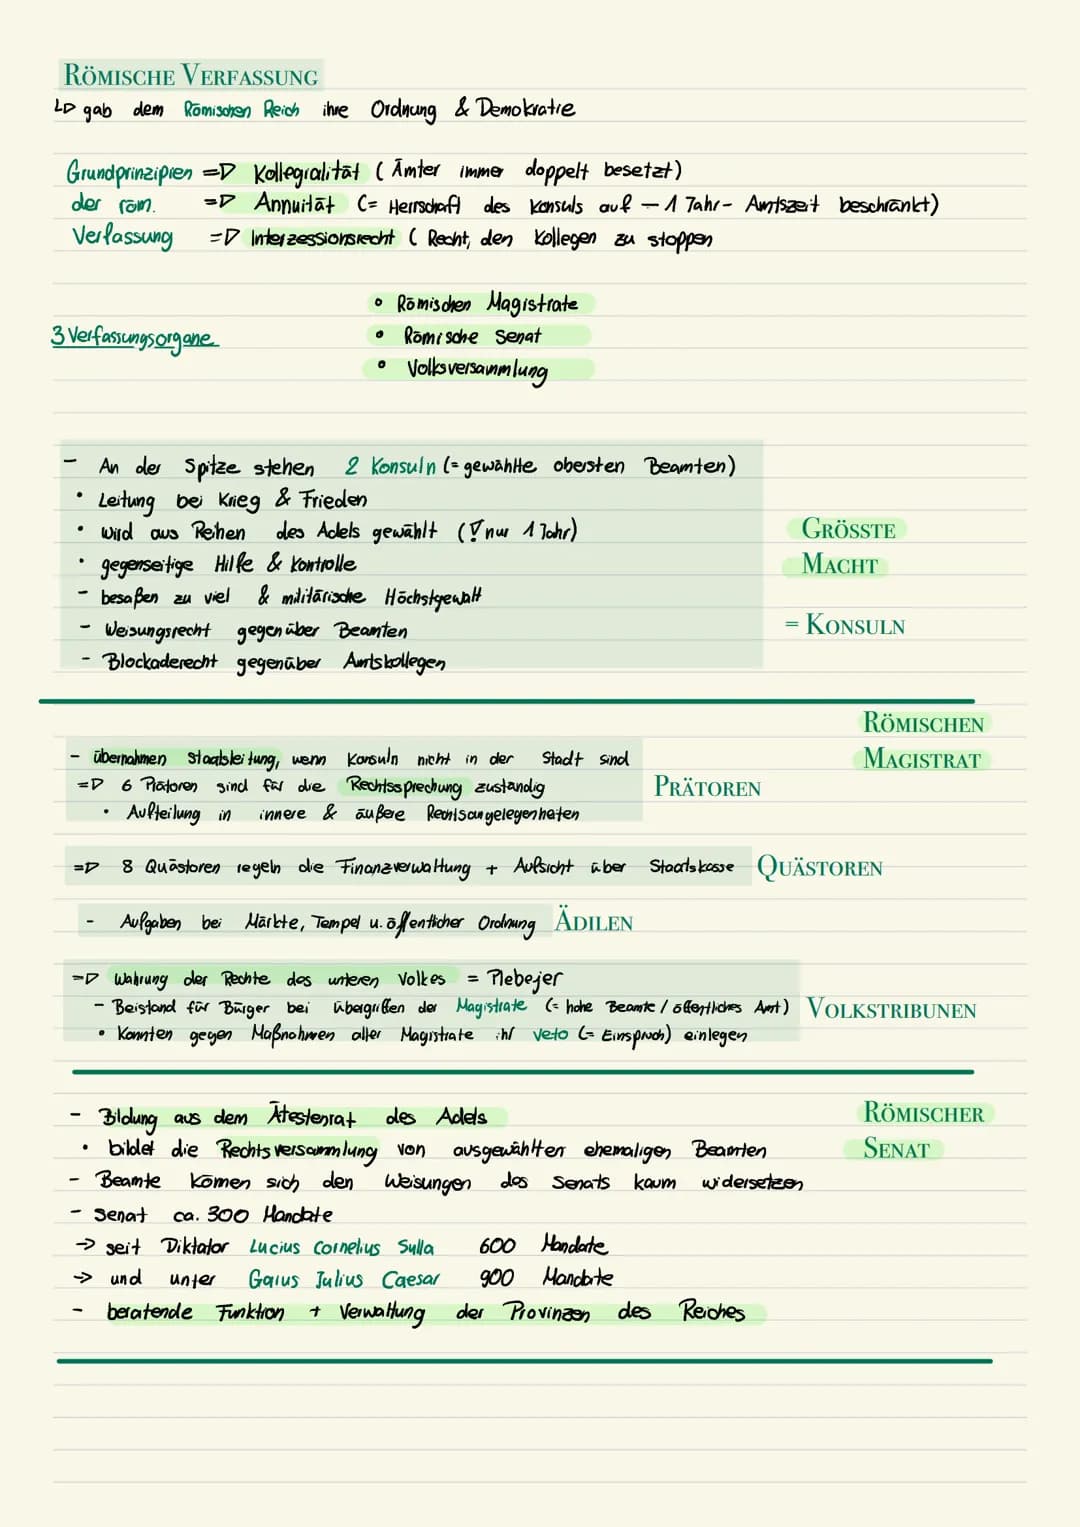 RÖMISCHE VERFASSUNG
↳ gab dem Römischen Reich ihre Ordnung & Demokratie
Grundprinzipien => Kollegialität (Ämter immer doppelt besetzt)
der röm. => Annuität (= Herrschaft des Konsuls auf - 1 Jahr- Amtszeit beschränkt)
Verfassung => Interzessionsrecht ( Recht, den Kollegen zu stoppen
• Römischen Magistrate
3 Verfassungsorgane • Römische Senat
• Volksversammlung
- An der Spitze stehen 2 Konsuln (= gewählte obersten Beamten)
• Leitung bei Krieg & Frieden
• wird aus Reihen des Adels gewählt (! nur 1 Jahr) GRÖSSTE
• gegenseitige Hilfe & Kontrolle MACHT
- besaßen zu viel & militärische Höchstgewalt
- Weisungsrecht gegenüber Beamten = KONSULN
- Blockaderecht gegenüber Amtskollegen
RÖMISCHEN
MAGISTRAT
- übernahmen Staatsleitung, wenn Konsuln nicht in der Stadt sind
=> 6 Prätoren sind für die Rechtssprechung zuständig PRÄTOREN
• Aufteilung in innere & äußere Rechtsangelegenheiten
=> 8 Quästoren regeln die Finanzverwaltung + Aufsicht über Staatskasse QUÄSTOREN
- Aufgaben bei Märkte, Tempel u. öffentlicher Ordnung ÄDILEN
=> Wahrung der Rechte des unteren Volkes = Plebejer
- Beistand für Bürger bei übergriffen der Magistrate (= hohe Beamte / öffentliches Amt) VOLKSTRIBUNEN
• Konnten gegen Maßnahmen aller Magistrate ihr Veto (= Einspruch) einlegen
- Bildung aus dem Ätestenrat des Adels RÖMISCHER
• bildet die Rechtsversammlung von ausgewählten ehemaligen Beamten SENAT
- Beamte können sich den Weisungen des Senats kaum widersetzen
- Senat ca. 300 Mandate
→ seit Diktator Lucius Cornelius Sulla 600 Mandate
→ und unter Gaius Julius Caesar 900 Mandate
- beratende Funktion + Verwaltung der Provinzen des Reiches